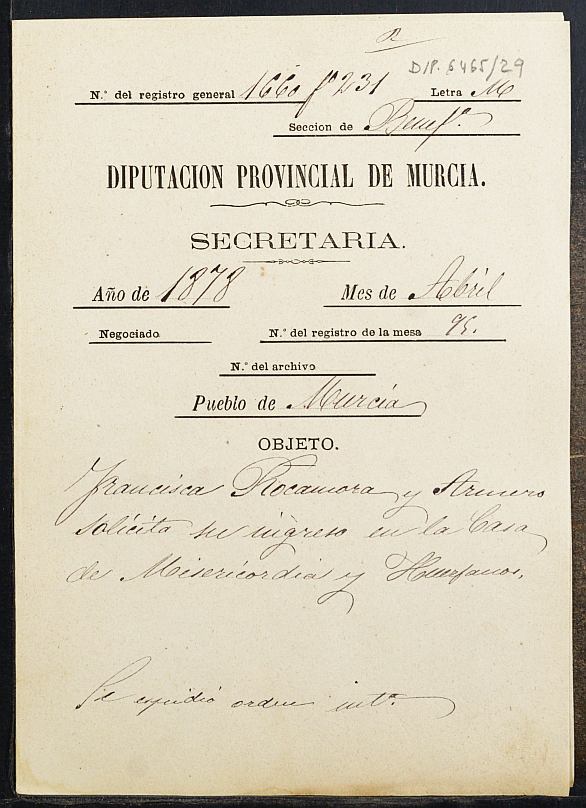 DIP. 6465/29
N.º del registro general 1660 fº 231 Letra M
Seccion de Benefª.
DIPUTACION PROVINCIAL DE MURCIA.
SECRETARIA.
Año de 1878 Mes de Abril
Negociado N.º del registro de la mesa 95.
N.º del archivo
Pueblo de Murcia
OBJETO.
Francisca Rocamora y Armero
solicita su ingreso en la Casa
de Misericordia y Huerfanos.
Se espidió orden intª.